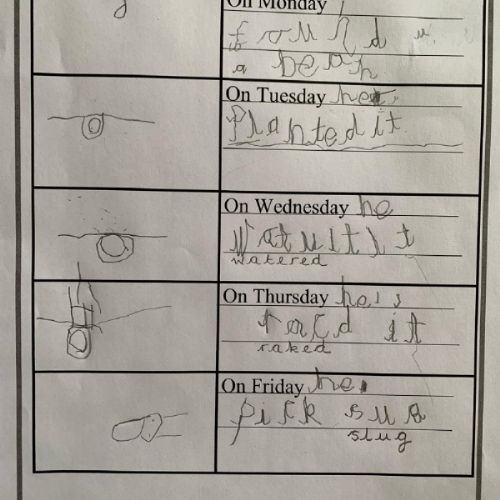 On Monday
found
a bean
On Tuesday he
Planted it
On Wednesday he
watered
On Thursday he
it
raked
On Friday he
pick sug
slug